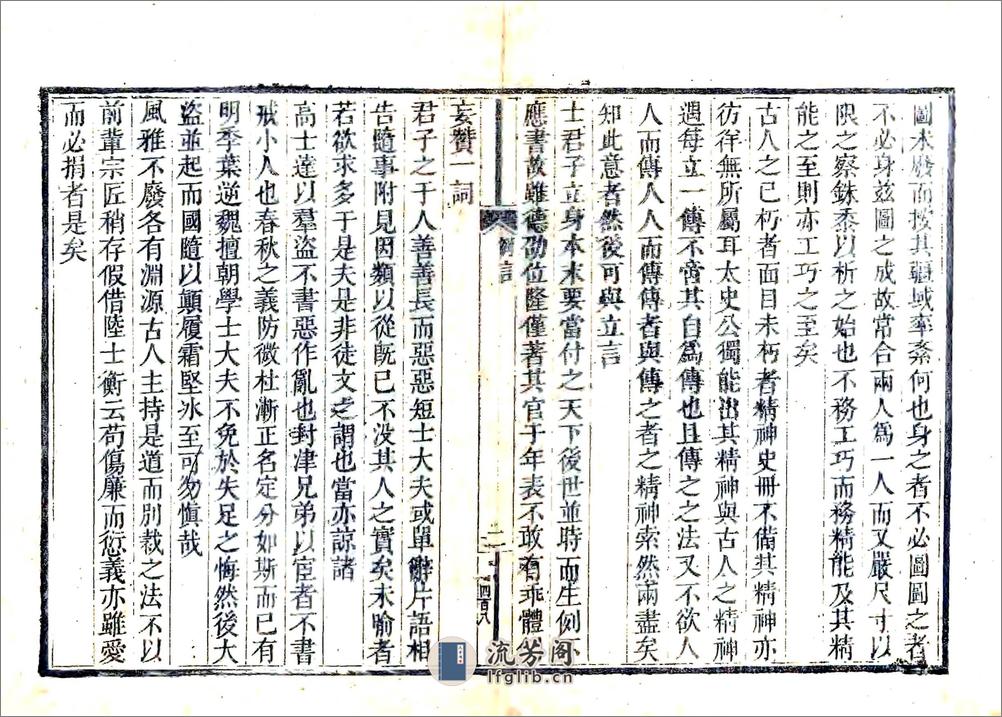 圖未廢而按其疆域率紊何也身之者不必圖圖之者
不必身玆圖之成故常合兩人爲一人而又嚴尺寸以
限之察銖黍以析之始也不務工巧而務精能及其精
能之至則亦工巧之至矣
古人之已朽者面目未朽者精神史冊不備其精神亦
彷徉無所屬耳太史公獨能出其精神與古人之精神
遇每立一傳不啻其自爲傳也且傳之之法又不欲人
人而傳人人而傳傳者與傳之者之精神索然兩盡矣
知此意者然後可與立言
士君子立身本末要當付之天下後世並時而生例不
應書故雖德劭位隆僅著其官于年表不敢有乖體
例言
二
四百八
妄贊一詞
君子之于人善善長而惡惡短士大夫或單辭片語相
告隨事附見因類以從旣已不没其人之實矣未喻者
若欲求多于是夫是非徒文之謂也當亦諒諸
高士達以羣盜不書惡作亂也封津兄弟以宦者不書
戒小人也春秋之義防微杜漸正名定分如斯而已有
明季葉逆魏擅朝學士大夫不免於失足之悔然後大
盜並起而國隨以顛履霜堅冰至可勿慎哉
風雅不廢各有淵源古人主持是道而別裁之法不以
前輩宗匠稍存假借陸士衡云苟傷廉而愆義亦雖愛
而必捐者是矣
流芳阁
lfglib.cn